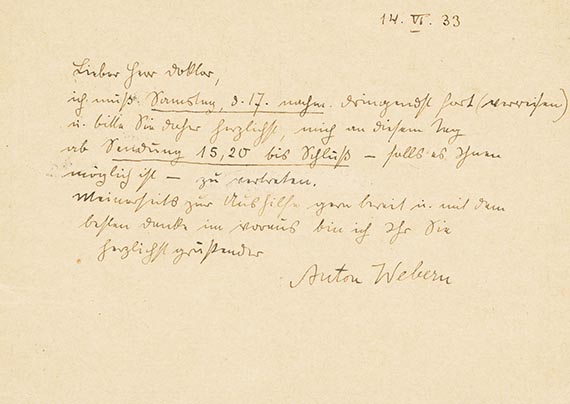 14. VI. 33
Lieber Herr Doktor,
ich muß Samstag, d. 17. nachm. dringendst fort (verreisen)
u. bitte Sie daher herzlichst, mich an diesem Tag
ab Sendung 15,20 bis Schluß – falls es Ihnen
möglich ist – zu vertreten.
Meinerseits zur Aushilfe gern bereit u. mit dem
besten Danke im voraus bin ich Ihr Sie
herzlichst grüßender
Anton Webern